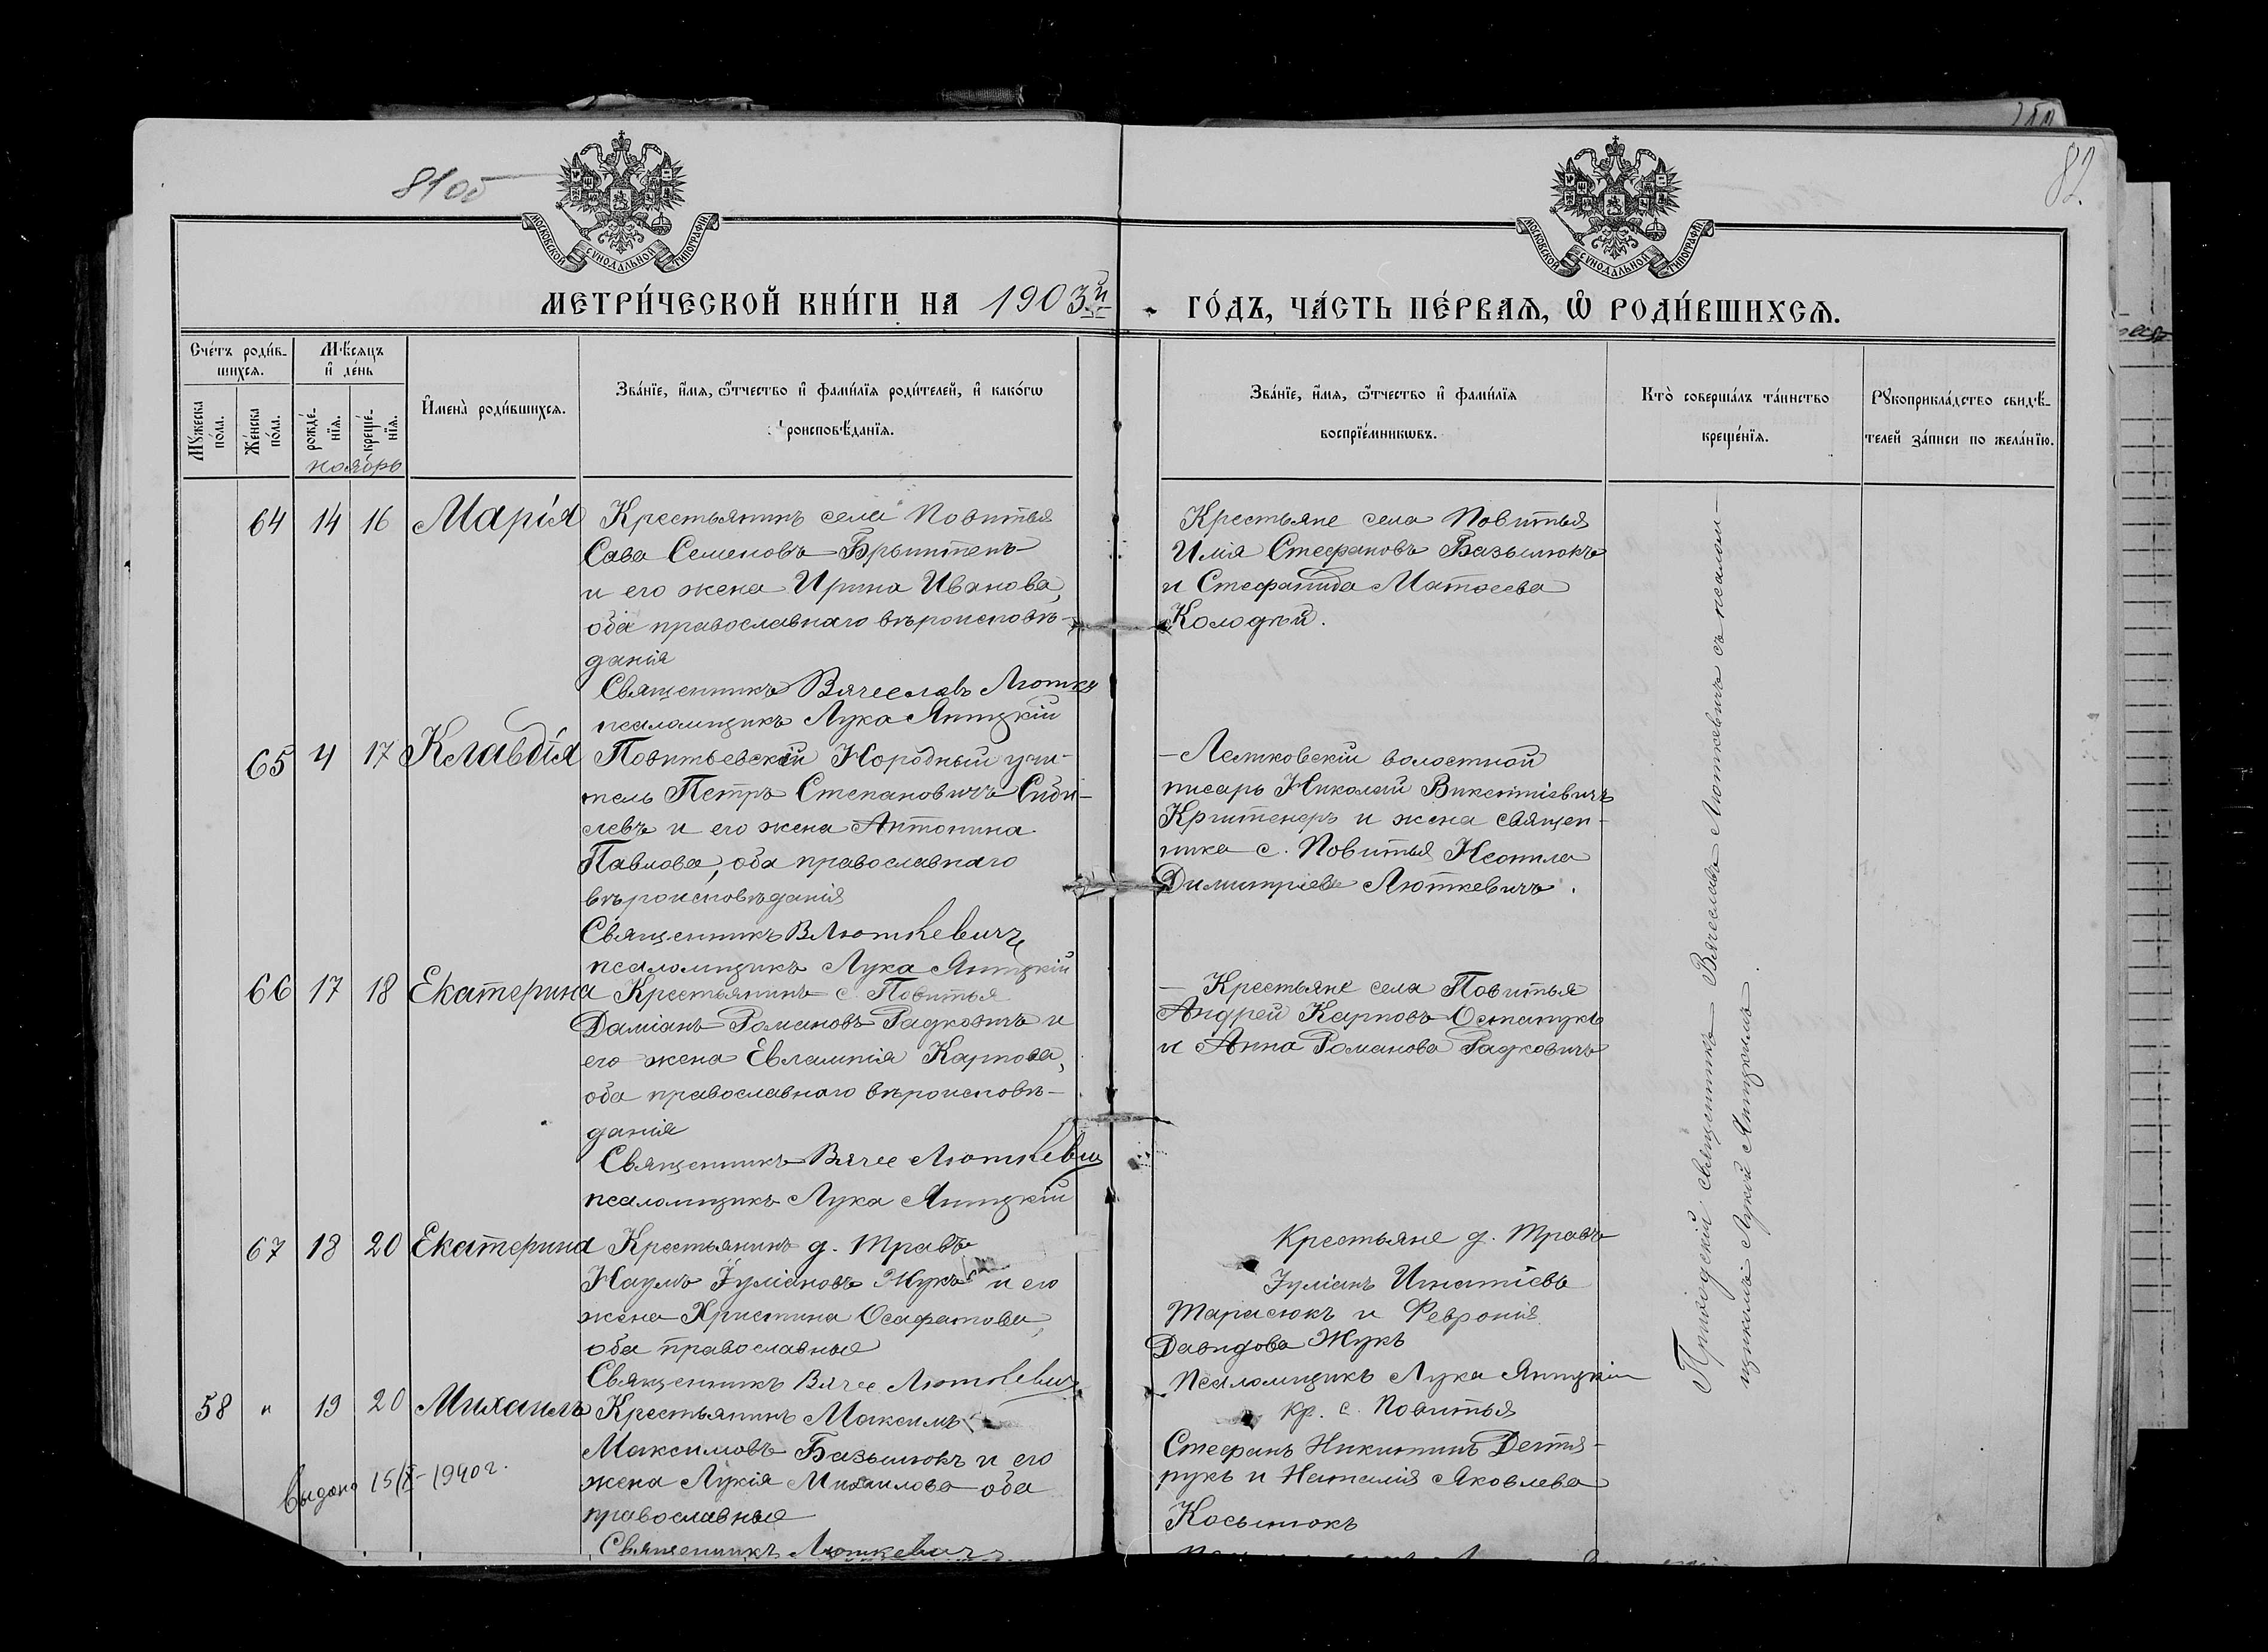 81об
82.
МОСКОВСКОЙ СѴНОДАЛЬНОЙ ТИПОГРАФІИ
МОСКОВСКОЙ СѴНОДАЛЬНОЙ ТИПОГРАФІИ
МЕТРИ́ЧЕСКОЙ КНИ́ГИ НА 1903й
ГО́ДЪ, ЧА́СТЬ ПЕ́РВАѦ, Ѿ РОДИ́ВШИХСѦ.
Сче́тъ роди́в-
шихсѧ.
Мꙋжеска
по́ла.
Же́нска
по́ла.
Мѣ́сѧцъ
и҆ де́нь
рожде́-
нїѧ.
креще́-
нїѧ.
ноябрь
И҆мена̀ роди́вшихсѧ.
Зва́нїе, и҆́мѧ, ѻ҆́тчество и҆ фами́лїѧ роди́телей, и҆ како́гѡ
роисповѣ́данїѧ.
Зва́нїе, и҆́мѧ, ѻ҆́тчество и҆ фами́лїѧ
воспрїе́мникѡвъ.
Кто̀ соверша́лъ та́инство
креще́нїѧ.
Рꙋкоприкла́дство свидѣ́-
телей за́писи по жела́нїю.
64 14 16 Марія
Крестьянинъ села Повитья
Сава Семеновъ
и его жена Ирина Иванова,
оба православнаго вѣроисповѣ-
данія
Священникъ Вячеславъ Лютке
псаломщикъ Лука Яницкій
Крестьяне села Повитья
Илія Стефановъ Базылюкъ
и Стефанида Матѳеева
Колодѣй.
65 4 17 Клавдія
Повитьевскій Народный учи-
тель Петръ Степановичъ Сиби-
левъ и его жена Антонина
Павлова, оба православнаго
вѣроисповѣданія
Священникъ ВЛюткевичъ
псаломщикъ Лука Яницкій
- Леликовскій волостной
писарь Николай Викентіевичъ
и жена священ-
ника с. Повитья Неонила
Димитріева Люткевичъ.
66 17 18 Екатерина
Крестьянинъ с. Повитья
Даміанъ Романовъ Радковичъ и
его жена Евлампія Карпова,
оба православнаго вѣроисповѣ-
данія
Священникъ Вячес Люткевич
псаломщикъ Лука Яницкій
- Крестьяне села Повитья
Андрей Карповъ Остапукъ
и Анна Романова Радковичъ
67 18 20 Екатерина
Крестьянинъ д. Травъ
Наумъ Іуліановъ Жукъ и его
жена Христина Осафатова,
оба православные
Священникъ Вячес Люткевич
Крестьяне д. Травъ
Іуліанъ Игнатіевъ
Тарасюкъ и Февронія
Давидова Жукъ
Псаломщикъ Лука Яницкій
58 " 19 20 Михаилъ
Крестьянинъ Максимъ
Максимовъ Базылюкъ и его
жена Лукія Михаилова оба
православные
Священникъ Люткевичъ
кр. с. Повитья
Стефанъ Никитинъ Дегтя-
рукъ и Наталія Яковлева
Косылюкъ
Выдано 15/X-1940г.
Приходскій священникъ Вячеславъ Люткевичъ съ псалом-
щикомъ Лукій Яницкимъ.